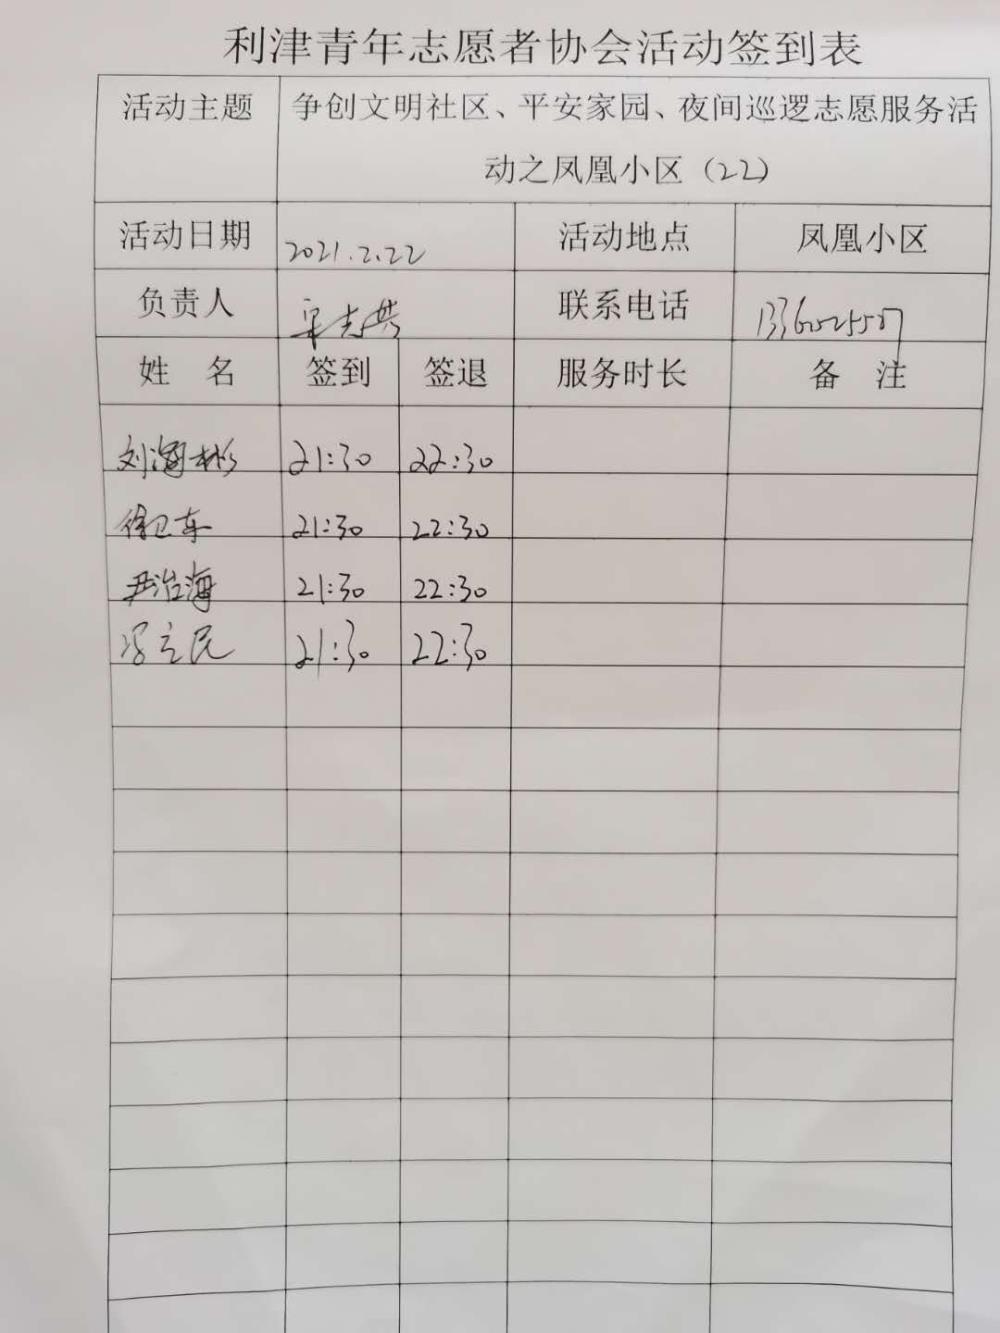 利津青年志愿者协会活动签到表
活动主题 争创文明社区、平安家园、夜间巡逻志愿服务活
动之凤凰小区（22）
活动日期 2021.2.22 活动地点 凤凰小区
负责人 联系电话
姓 名 签到 签退 服务时长 备 注
刘 彬 21:30 22:30
徐卫东 21:30 22:30
尹治海 21:30 22:30
冯立民 21:30 22:30